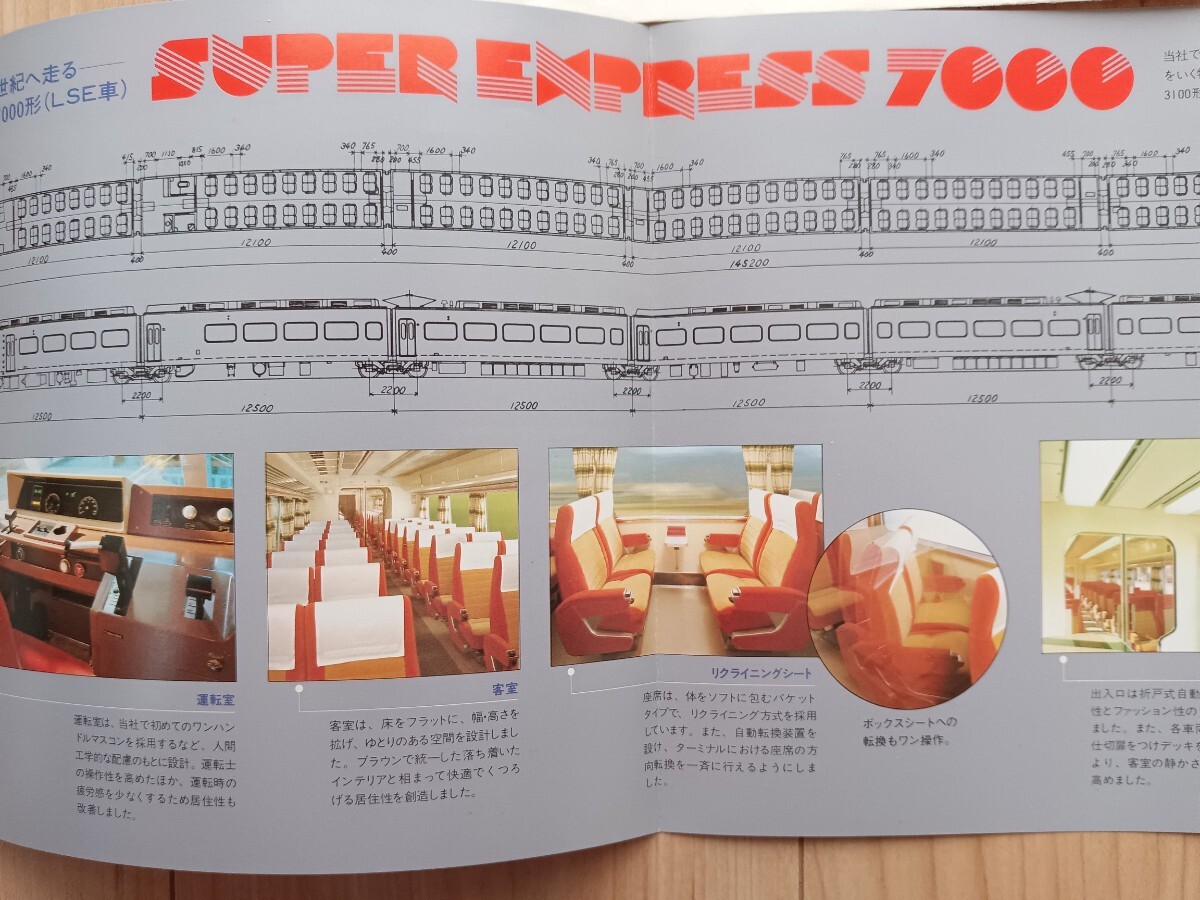 世紀へ走る――
000形(LSE車)
SUPER EXPRESS 7000
当社で
をいく
3100形
415 700 1100 815 1600 340
340 765 700 455 1600 340
340 765 700 1600 340
765 1600 340
455 700 765 1600 340
12100 400 12100 400 12100 400 12100 400 12100 400
145200
2200 2200 2200 2200 2200
12500 12500 12500 12500 12500
運転室
運転室は、当社で初めてのワンハン
ドルマスコンを採用するなど、人間
工学的な配慮のもとに設計。運転士
の操作性を高めたほか、運転時の
疲労感を少なくするため居住性も
改善しました。
客室
客室は、床をフラットに、幅・高さを
拡げ、ゆとりのある空間を設計しまし
た。ブラウンで統一した落ち着いた
インテリアと相まって快適でくつろ
げる居住性を創造しました。
リクライニングシート
座席は、体をソフトに包むバケット
タイプで、リクライニング方式を採用
しています。また、自動転換装置を
設け、ターミナルにおける座席の方
向転換を一斉に行えるようにしまし
た。
ボックスシートへの
転換もワン操作。
出入口は折戸式自動
性とファッション性の
ました。また、各車両
仕切扉をつけデッキを
より、客室の静かさ
高めました。